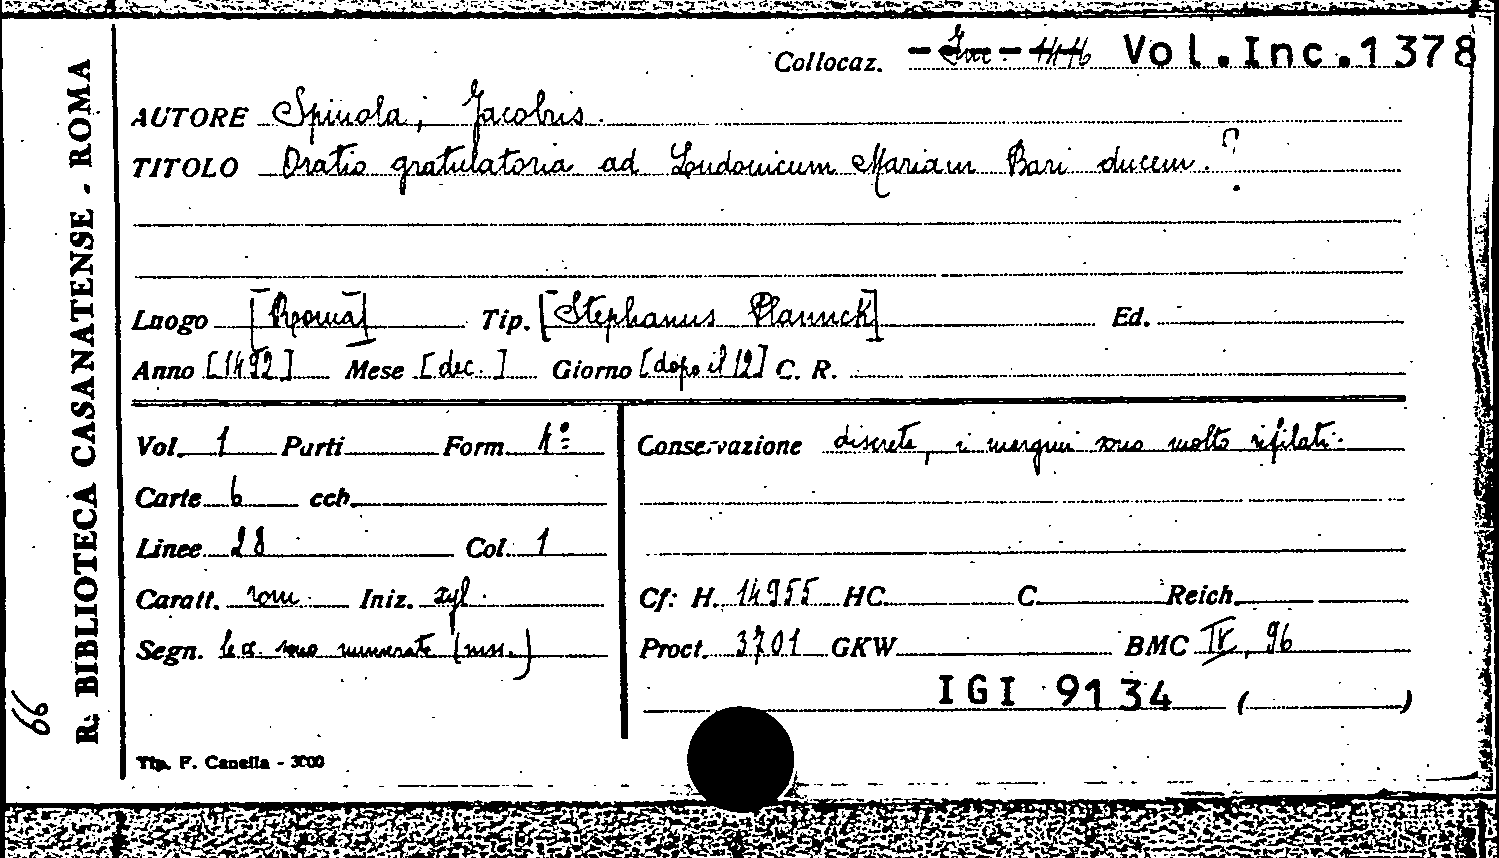 Collocaz. Vol.Inc.1378
AUTORE Spinola, Jacobus.
TITOLO Oratio gratulatoria ad Ludovicum Mariam Bari ducem. ?
Luogo [Roma] Tip. [Stephanus Plannck] Ed.
Anno [1492] Mese [dec.] Giorno [dopo il 12] C. R.
Vol. 1 Parti Form. 4º
Conservazione discreta, i margini sono molto rifilati.
Carte 6 cch.
Linee 28 Col. 1
Caratt. rom. Iniz. xyl.
Cf: H. 14955 HC. C. Reich.
Segn. le cc. sono numerate (mss.)
Proct. 3701 GKW BMC IV, 96
IGI 9134 ( )
Tip. F. Canella - 3000
R. BIBLIOTECA CASANATENSE - ROMA
66